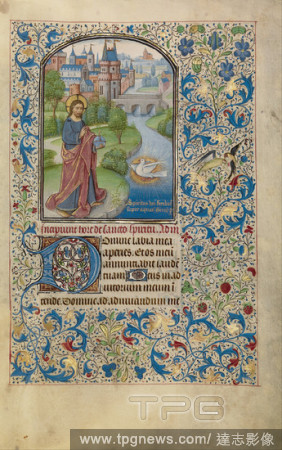 Spiritus dei
super aquas
Incipiunt hore de sancto spiritu. Ad m
Domine labia mea
aperies. Et os meu
annunciabit laude
tuam. Deus in ad
iutorium meum i
tende. Domine ad adiuvandum me
TPG
www.tpgnews.com/ 達志影像